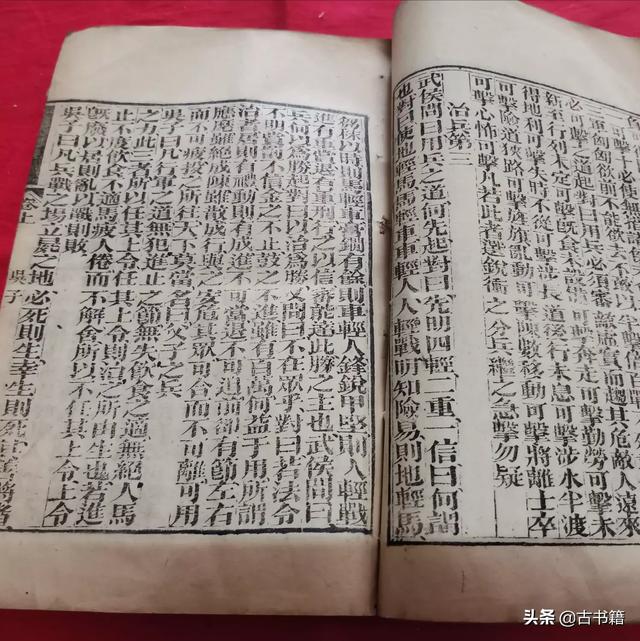 必可擊之道起對曰用兵必須審敵虛實而趨其危敵人遠來
新至行列未定可擊既食未設備可擊奔走可擊勤勞可擊未
得地利可擊失時不從可擊涉長道後行未息可擊涉水半渡
可擊險道狹路可擊旌旗亂動可擊陳數移動可擊將離士卒
可擊心怖可擊凡若此者選銳衝之分兵繼之急擊勿疑
治兵第三
武侯問曰用兵之道何先起對曰先明四輕二重一信曰何謂
也對曰使地輕馬馬輕車車輕人人輕戰明知險易則地輕馬
芻秣以時則馬輕車膏鐧有餘則車輕人鋒銳甲堅則人輕戰
進有重賞退有重刑行之以信審能達此勝之主也武侯問曰
兵何以爲勝起對曰以治爲勝又問曰不在眾乎對曰若法令
不明賞罰不信金之不止鼓之不進雖有百萬何益于用所謂
治者居則有禮動則有威進不可當退不可追前卻有節左右
應麾雖絕成陳雖散成行與之安與之危其眾可合而不可離可用
而不可疲投之所往天下莫當名曰父子之兵
吳子曰凡行軍之道無犯進止之節無失飲食之適無絕人馬
之力此三者所以任其上令任其上令則治之所由生也若進
止不度飲食不適馬疲人倦而不解舍所以不任其上令上令
既廢以居則亂以戰則敗
吳子曰凡兵戰之場立屍之地必死則生幸生則死其善將者
卷上
吳子
头条 @古书籍